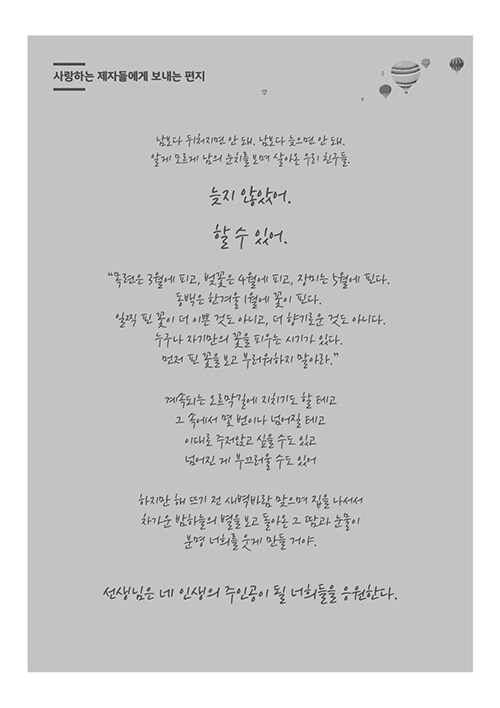 사랑하는 제자들에게 보내는 편지
남보다 뒤처지면 안 돼. 남보다 늦으면 안 돼.
알게 모르게 남의 눈치를 보며 살아온 우리 친구들.
늦지 않았어.
할 수 있어.
“목련은 3월에 피고, 벚꽃은 4월에 피고, 장미는 5월에 핀다.
동백은 한겨울 1월에 꽃이 핀다.
일찍 핀 꽃이 더 이쁜 것도 아니고, 더 향기로운 것도 아니다.
누구나 자기만의 꽃을 피우는 시기가 있다.
먼저 핀 꽃을 보고 부러워하지 말아라.”
계속되는 오르막길에 지치기도 할 테고
그 속에서 몇 번이나 넘어질 테고
이대로 주저앉고 싶을 수도 있고
넘어진 게 부끄러울 수도 있어
하지만 해 뜨기 전 새벽바람 맞으며 집을 나서서
차가운 밤하늘의 별을 보고 돌아온 그 땀과 눈물이
분명 너희를 웃게 만들 거야.
선생님은 네 인생의 주인공이 될 너희들을 응원한다.